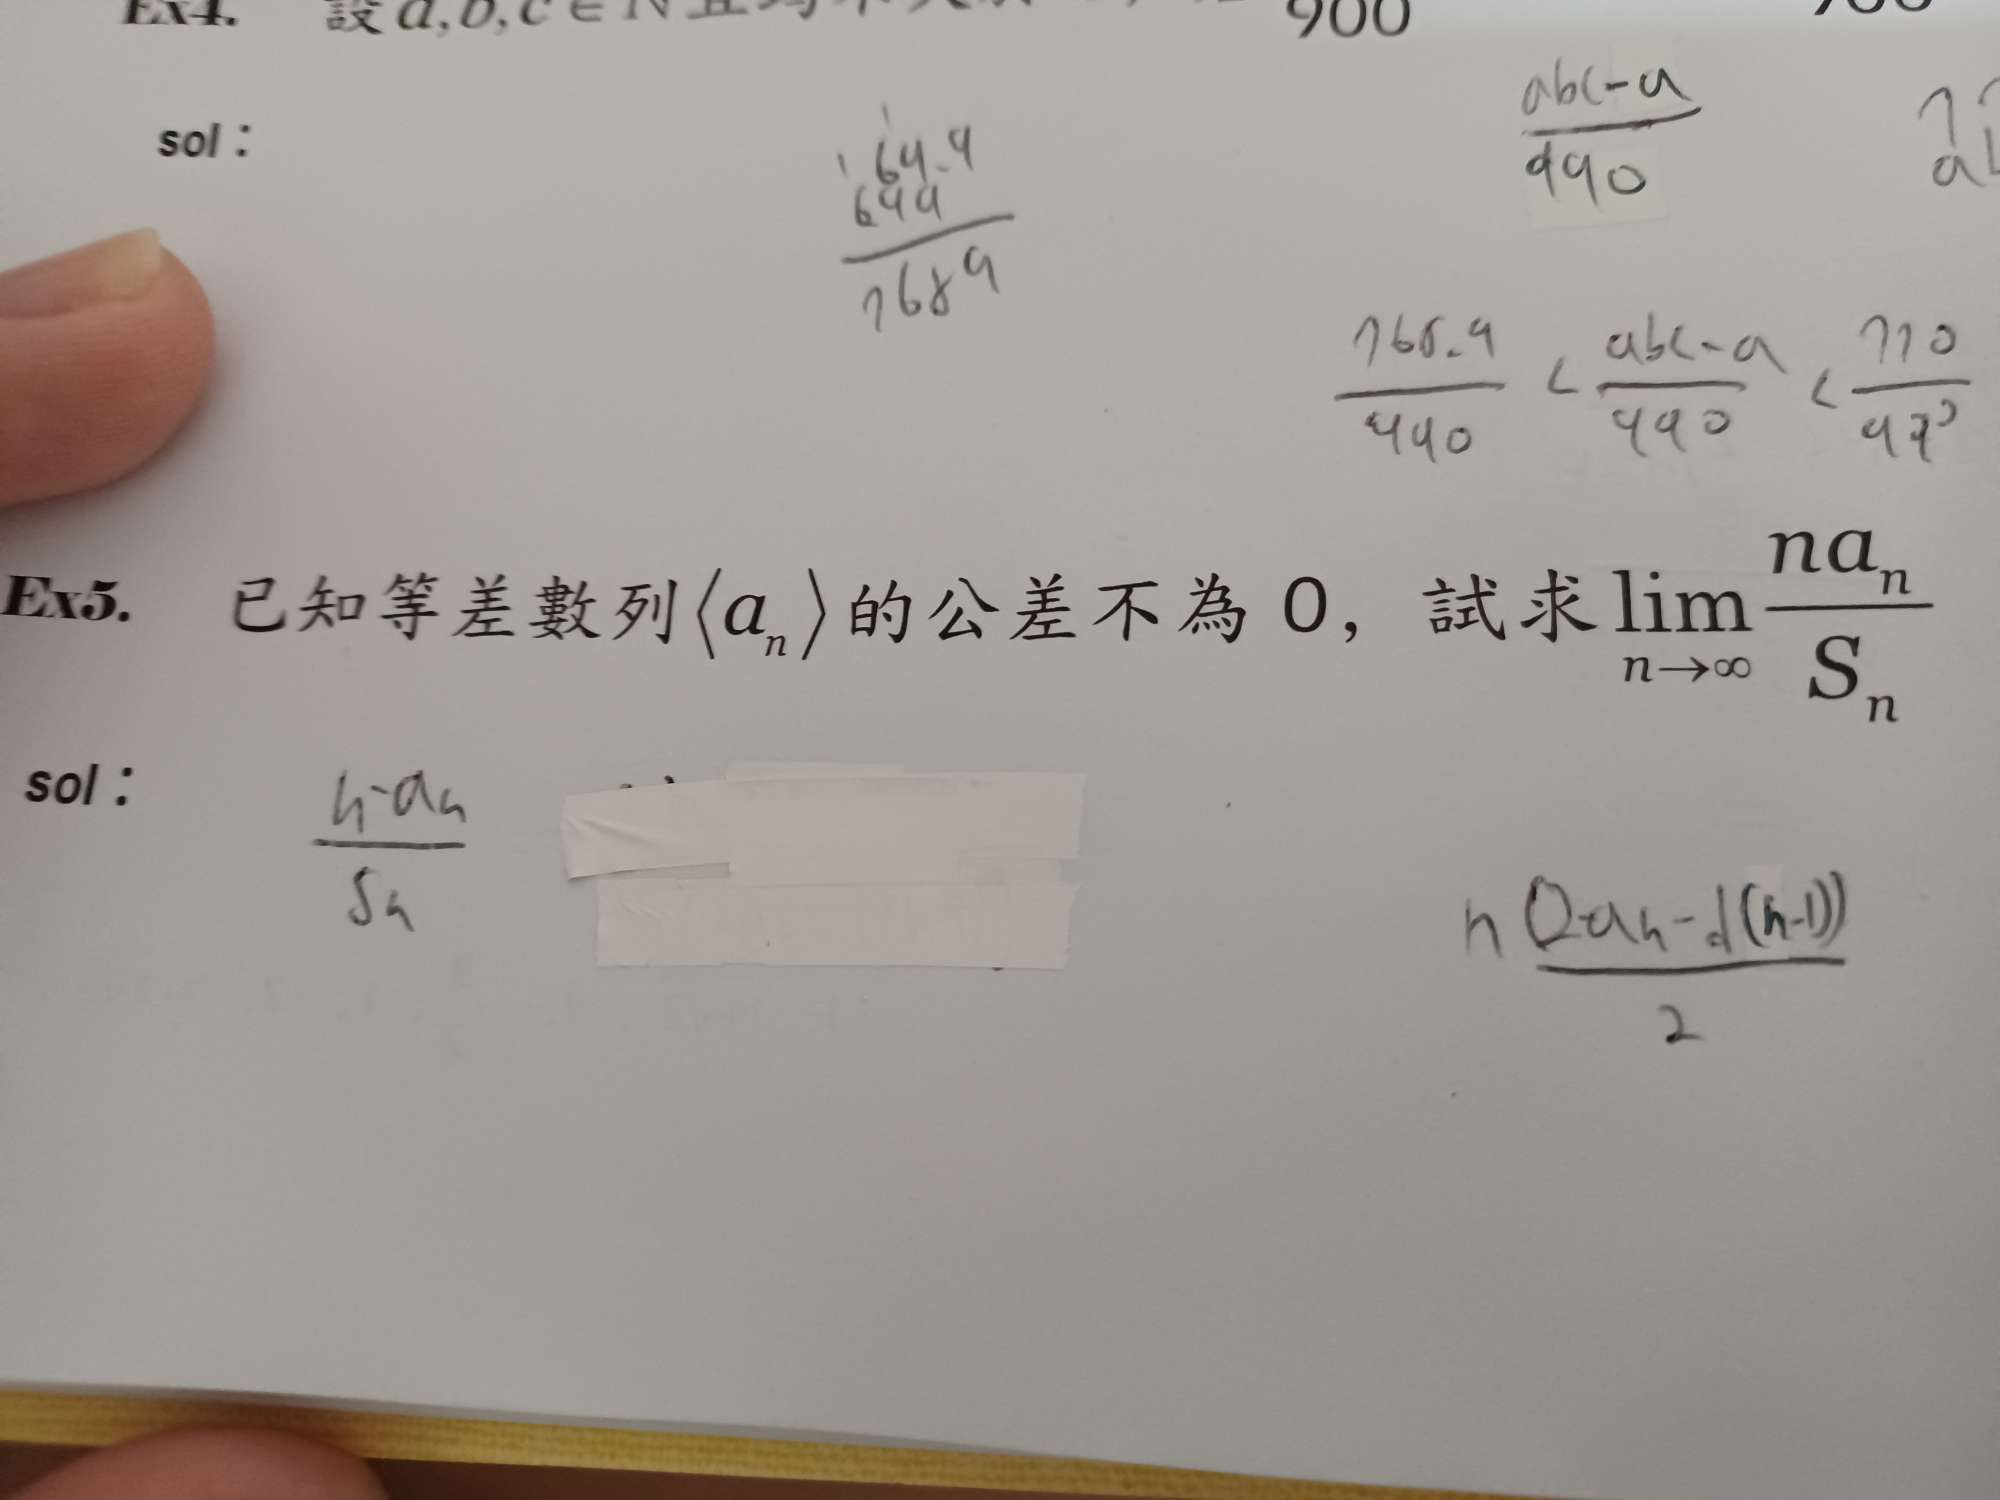 Ex4. 設 a, b, c ∈ N 且 900
sol：
64.9
699
7689
abc-a
990
768.9/990 < abc-a/990 < 770/990
Ex5. 已知等差數列⟨aₙ⟩的公差不為 0，試求 lim n→∞ naₙ/Sₙ
sol：
n·aₙ/Sₙ
n(2·aₙ-d(n-1))/2